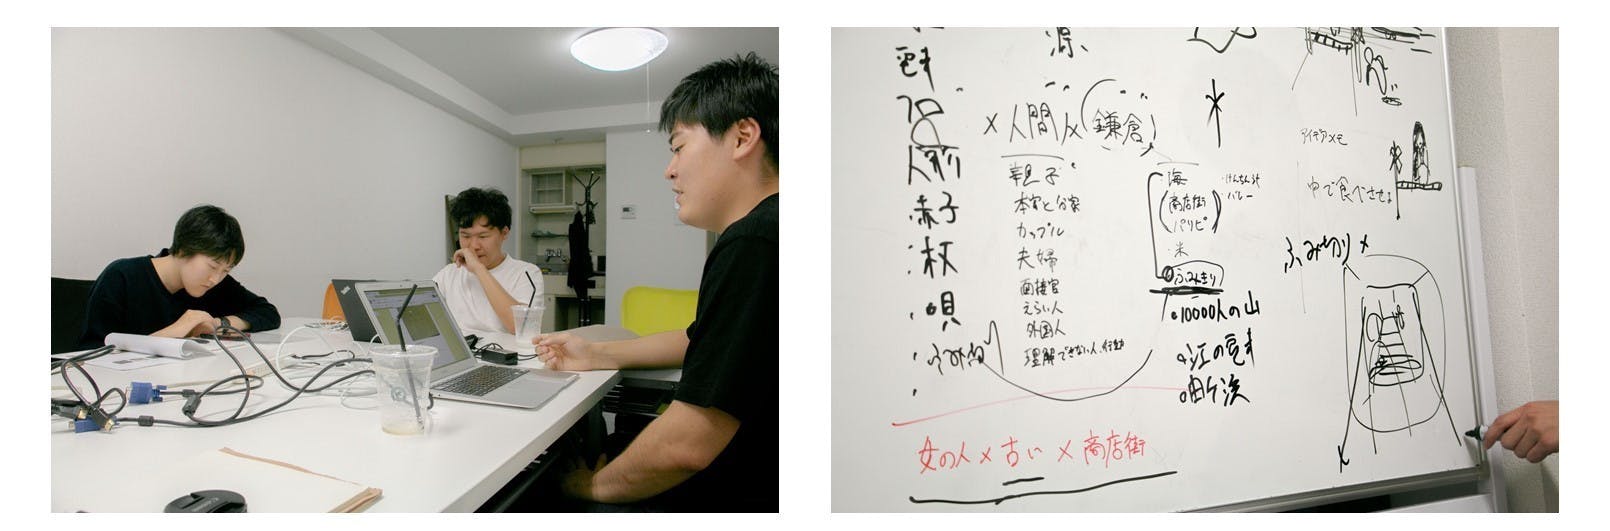 源
人形
赤子
枚
唄
ふみ切
×人間×(鎌倉)
親息子
本家と分家
カップル
夫婦
面接官
えらい人
外国人
理解できない人、行動
海
商店街
パリピ
米
ふみきり
10000人の山
由ヶ浜
けんちん汁
バレー
アイデアメモ
中で食べさせる
ふみ切り×
女の人×古い×商店街